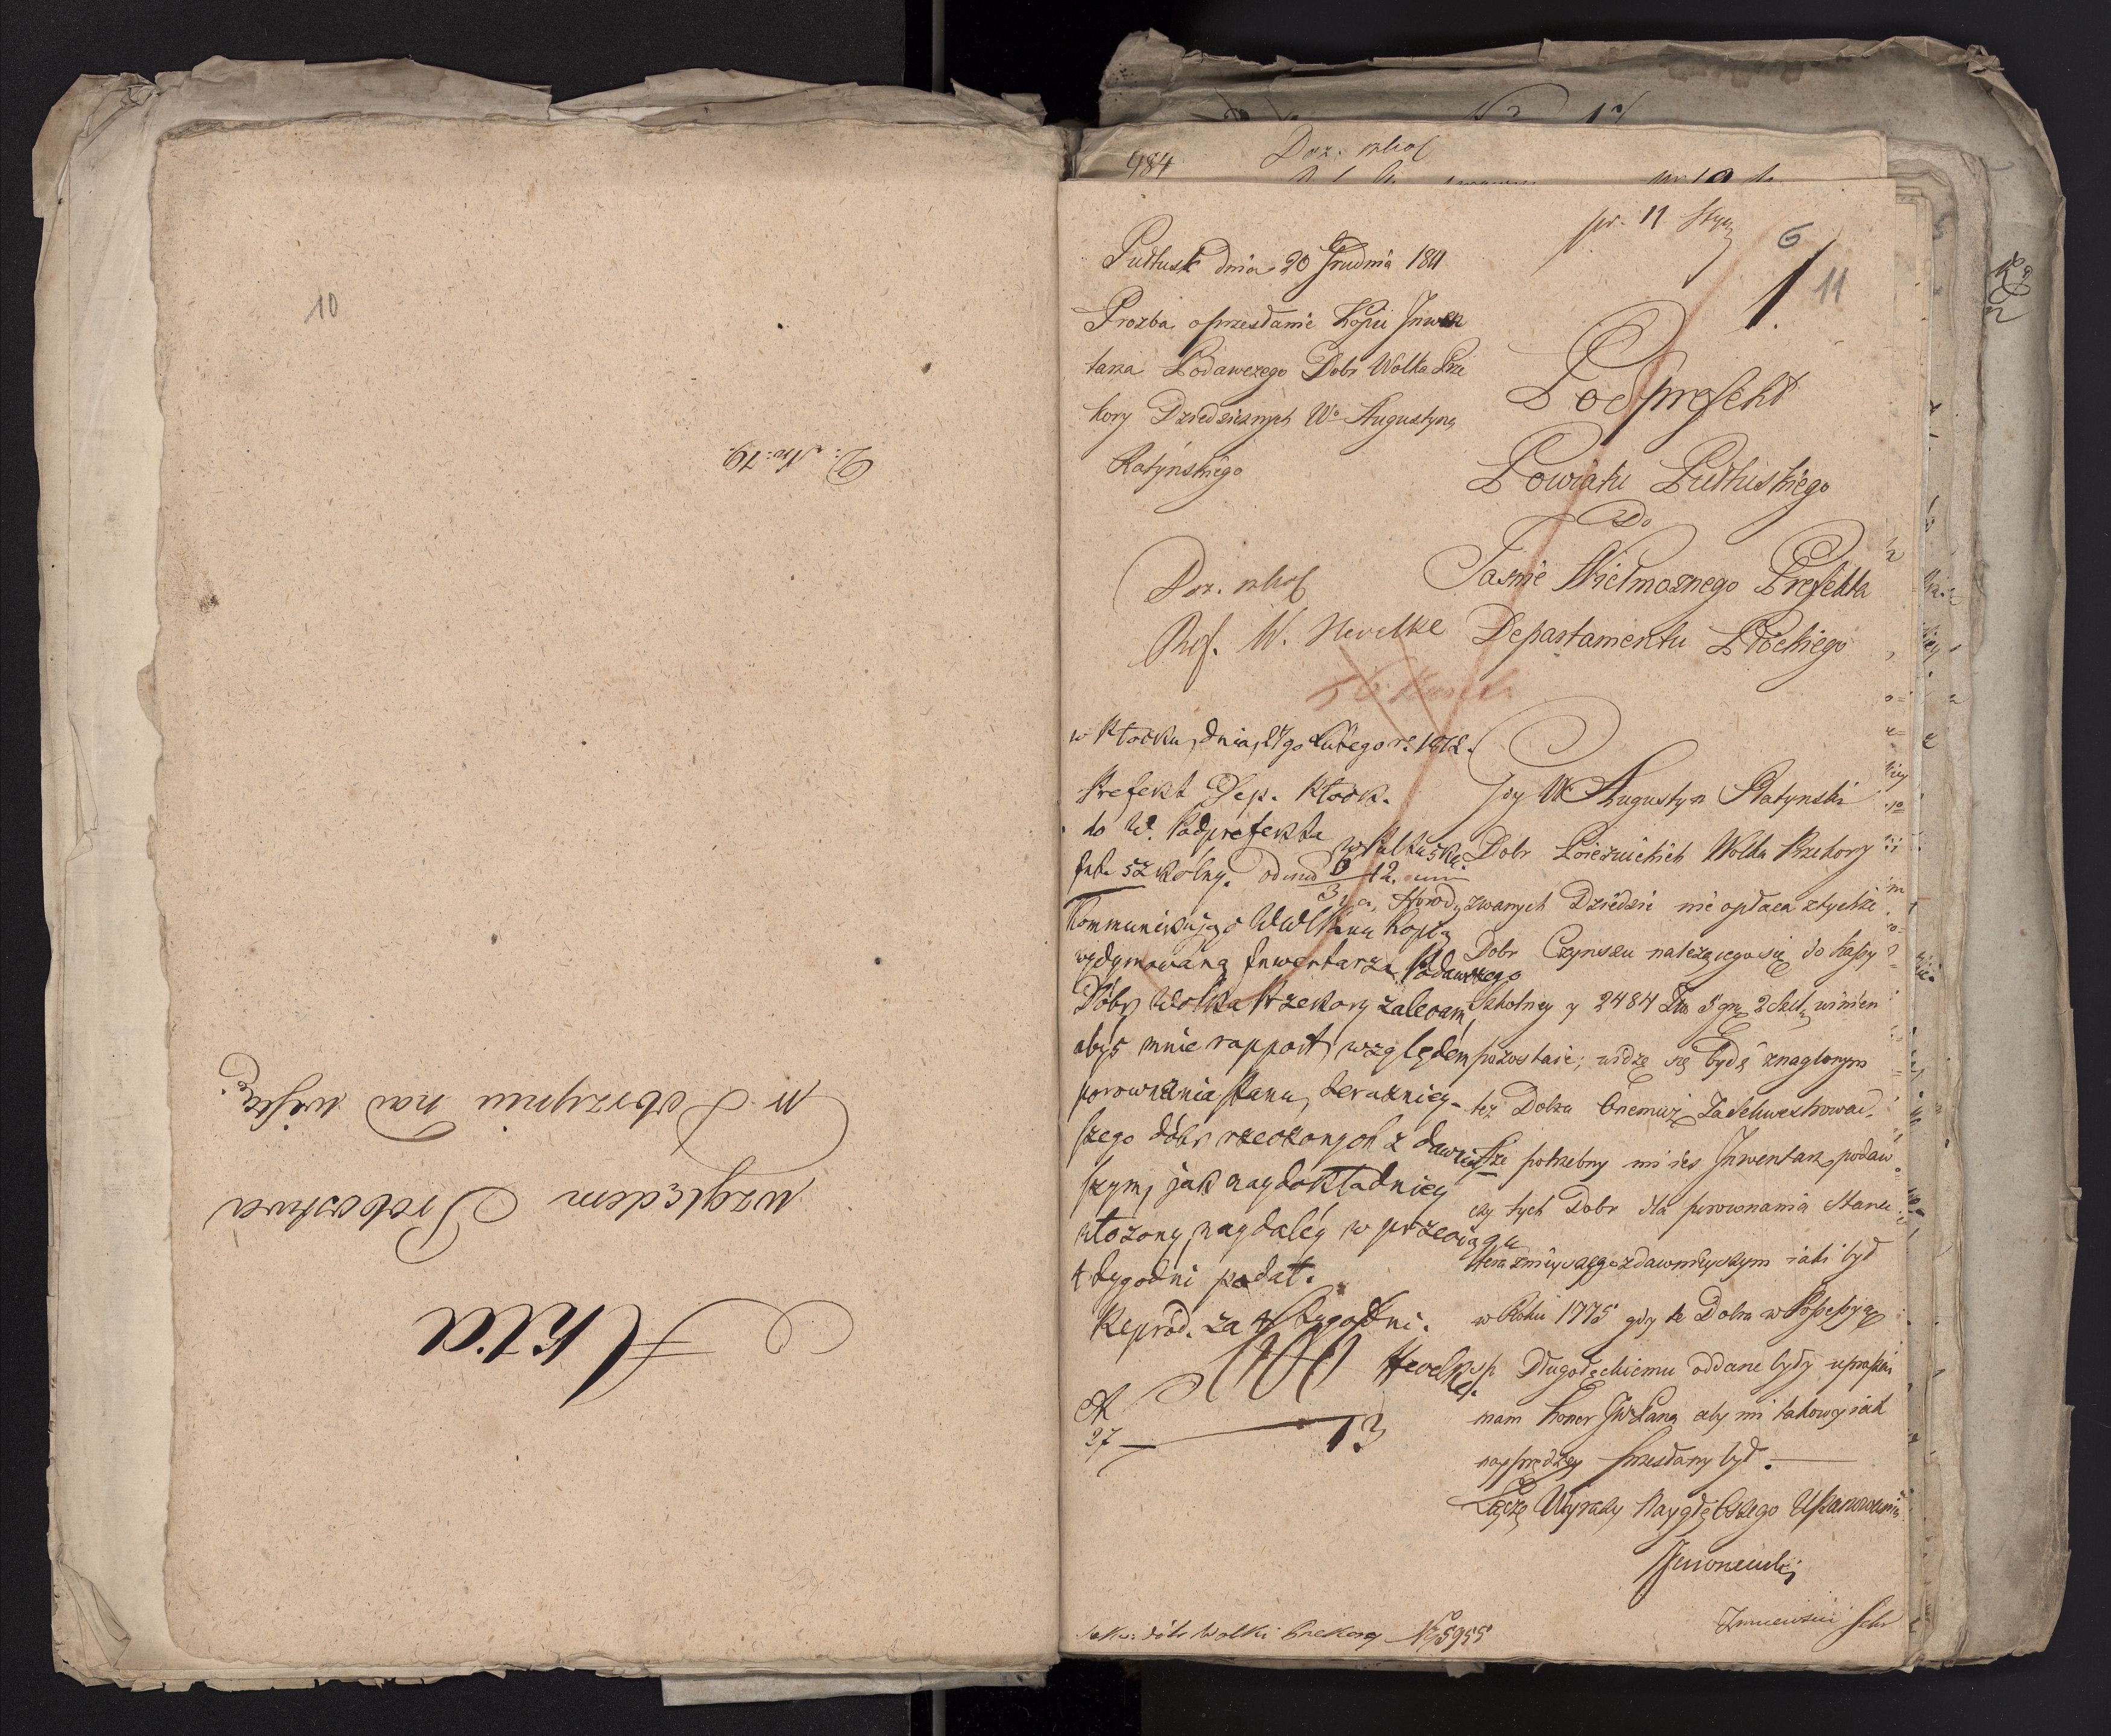 10
D. Nro: 19.
Akta
względem Probostwa
w Dobrzyniu nad wisłą.
484 Doz. szkol
pr. 11 Stycz
6
1. 11
Pułtusk dnia 20 Grudnia 1811
Prozba o przesłanie Kopii Inwen
tarza Podawczego Dobr Wolka Prze
kory Dziedzicznych Wo Augustyna
Ratyńskiego
Podprefekt
Powiatu Pułtuskiego
Do
Jaśnie Wielmożnego Prefekta
Departamentu Płockiego
Doz. szkol
Ref. W. Hevelke
w Płocku, dnia 27go Lutego r. 1812.
Prefekt Dep. Płock.
do W. Podprefekta
w Pułtusku
Int. szkolny.
Kommunikując WWPanu kopię
widymowaną Inwentarza Podawczego
Dóbr Wolka Przekory zalecam,
abyś mnie rapport względem
porownania stanu, teraźniey-
szego dóbr rzeczonych z dawniey
szym, jak naydokładniey
ułożony naydaley w przeciągu
4 tygodni podał.
Reprod. za 4 tygodni.
Hevelke
27 13
Gdy W Augustyn Ratynski
Dobr Poiezuickich Wolka Przekory
zwanych Dziedzic nie opłaca z tychże
Dobr Czynszu należącego się do kassy
Szkolney y 2484 Złp 5 gr 2 szel winien
pozostaie; widzę się bydź znaglonym
też Dobra Onemuż Zasekwestrować.
Że potrzebny mi ies Inwentarz podaw
czy tych Dobr dla porownania Stanu
teraznieyszego z dawnieyszym iaki był
w Roku 1775 gdy te Dobra w Possessyą
Długołęckiemu oddane były upraszać
mam honor JWPana aby mi takowy iak
nayprędzey przesłany był.
Łączę Wyrazy Naygłębszego Uszanowania
Sekw. dóbr Wolki Przekory No 5955